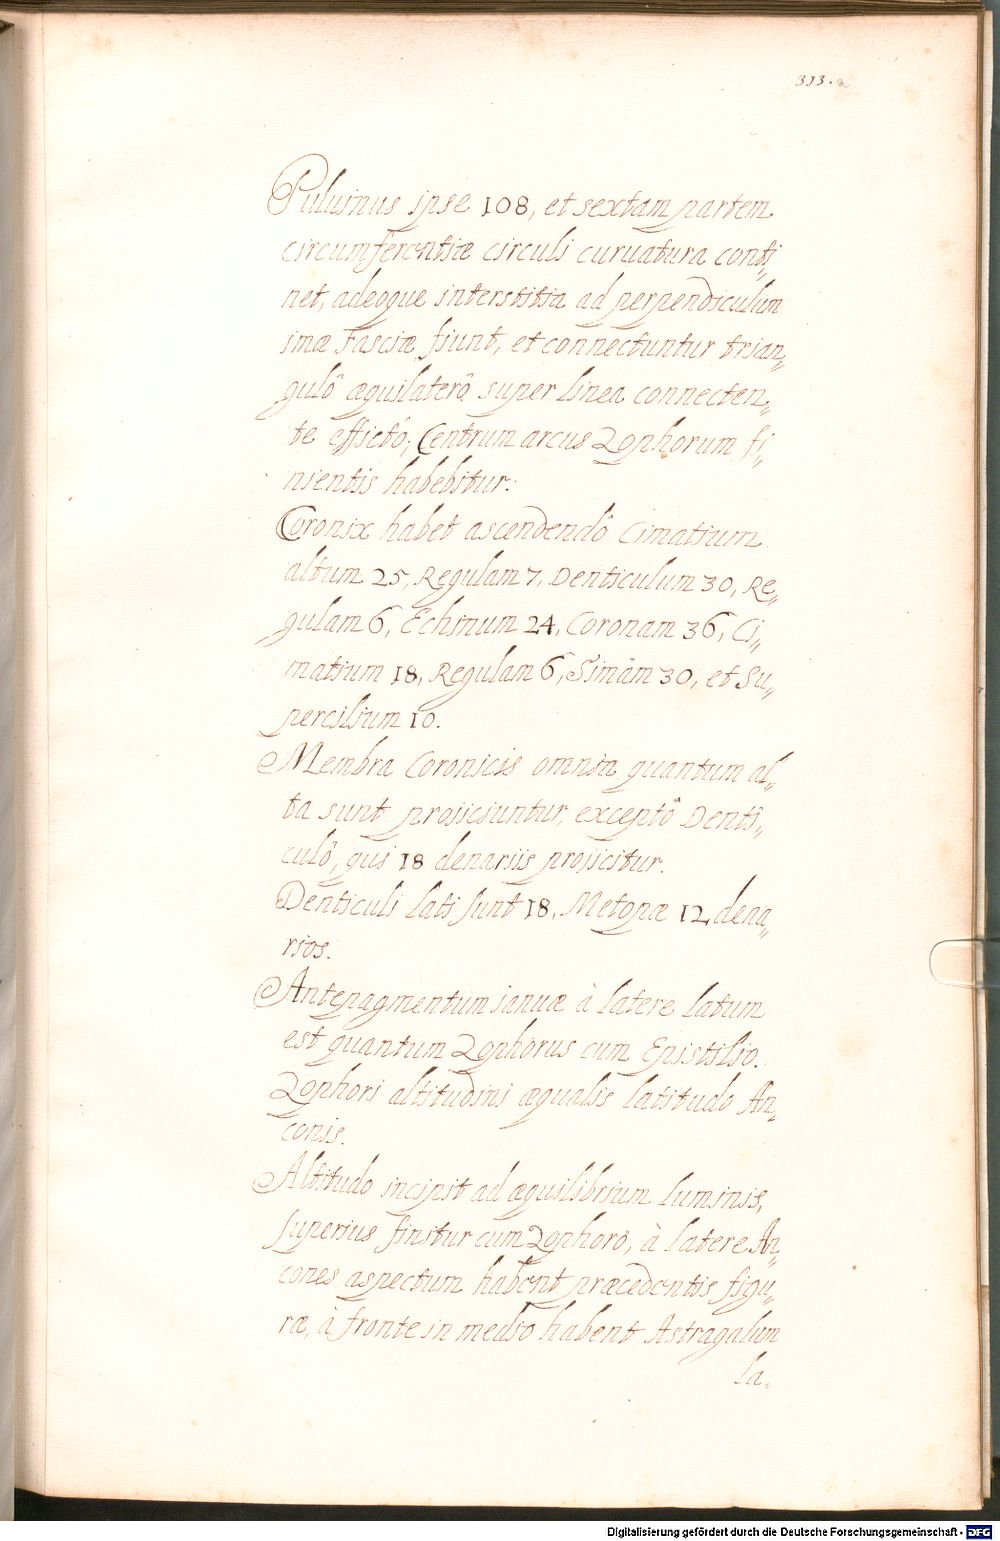 313. a
Puluinus ipse 108, et sextam partem
circumferentiæ circuli curuatura conti„
net, adeoque interstitia ad perpendiculum
imæ Fasciæ fiunt, et connectuntur trian„
gulô æquilaterô super linea connecten„
te effictô; Centrum arcus Zophorum fi„
nientis habebitur.
Coronix habet ascendendô Cimatium
altum 25, Regulam 7, Denticulum 30, Re„
gulam 6, Echinum 24, Coronam 36, Ci„
matium 18, Regulam 6, Simam 30, et Su„
percilium 10.
Membra Coronicis omnia quantum al„
ta sunt proijciuntur, exceptô Denti„
culô, qui 18 denariis proijcitur.
Denticuli lati sunt 18, Metopæ 12 dena„
rios.
Antepagmentum ianuæ à latere latum
est quantum Zophorus cum Epistilio.
Zophori altitudini æqualis latitudo An„
conis.
Altitudo incipit ad æquilibrium luminis,
superius finitur cum Zophoro, à latere An„
cones aspectum habent præcedentis figu„
ræ, à fronte in medio habent Astragalum
la„
Digitalisierung gefördert durch die Deutsche Forschungsgemeinschaft - DFG